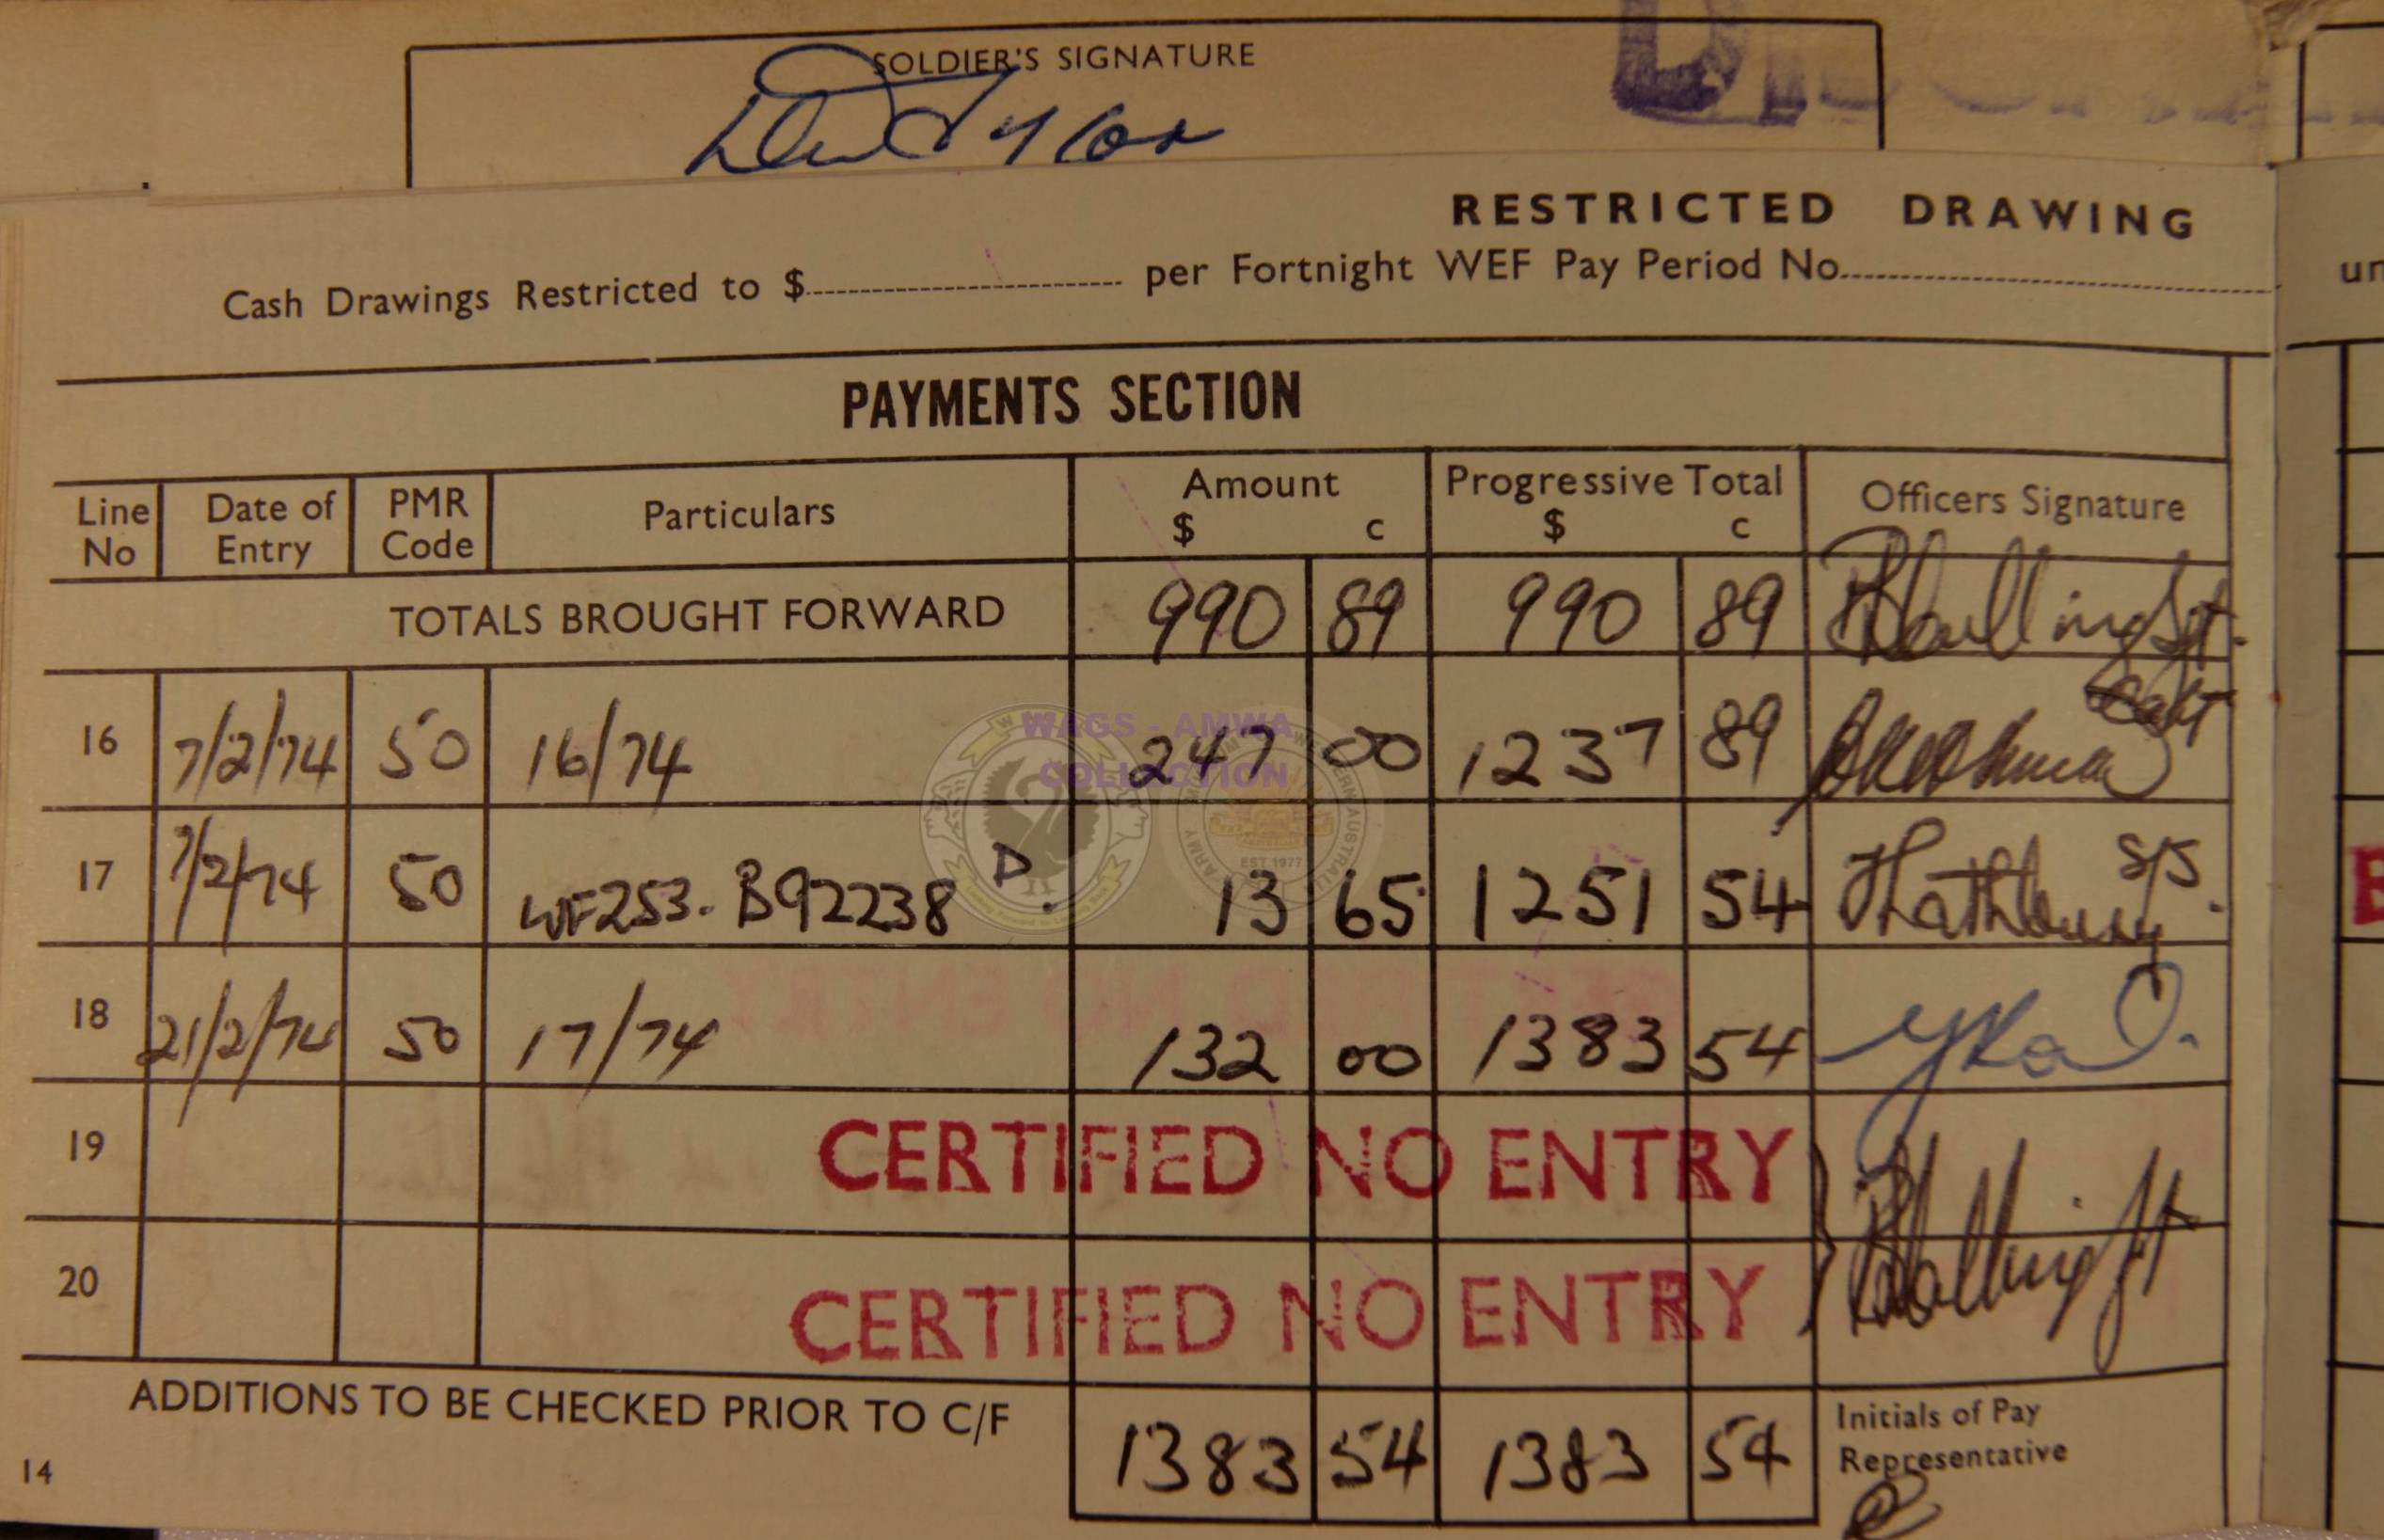 SOLDIER'S SIGNATURE
RESTRICTED DRAWING
Cash Drawings Restricted to $ per Fortnight WEF Pay Period No
un
PAYMENTS SECTION
Line No Date of Entry PMR Code Particulars Amount $ c Progressive Total $ c Officers Signature
TOTALS BROUGHT FORWARD 990 89 990 89
16 7/2/74 50 16/74 247 00 1237 89
WAGS - AMWA
COLLECTION
EST 1977
17 7/2/74 50 WF253. B92238 D. 13 65 1251 54
18 21/2/74 50 17/74 132 00 1383 54
19 CERTIFIED NO ENTRY
20 CERTIFIED NO ENTRY
ADDITIONS TO BE CHECKED PRIOR TO C/F 1383 54 1383 54 Initials of Pay Representative
14